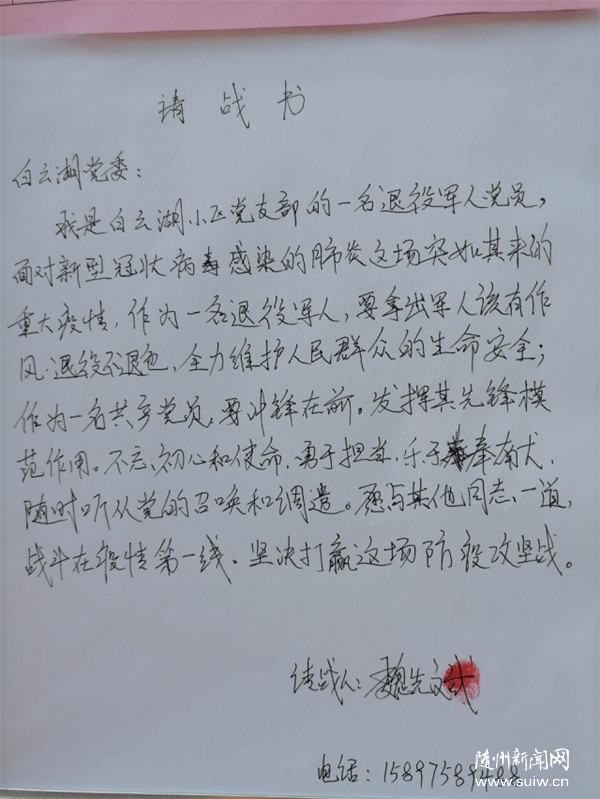 请战书
白云湖党委：
我是白云湖小区党支部的一名退役军人党员，
面对新型冠状病毒感染的肺炎这场突如其来的
重大疫情，作为一名退役军人，要拿出军人该有作
风.退役不退色，全力维护人民群众的生命安全；
作为一名共产党员，要冲锋在前。发挥其先锋模
范作用。不忘、初心和使命，勇于担当，乐于奉献，
随时听从党的召唤和调遣。愿与其他同志、一道，
战斗在疫情第一线.坚决打赢这场防役攻坚战。
请战人：魏先文
电话：15897589488
随州新闻网
www.suiw.cn